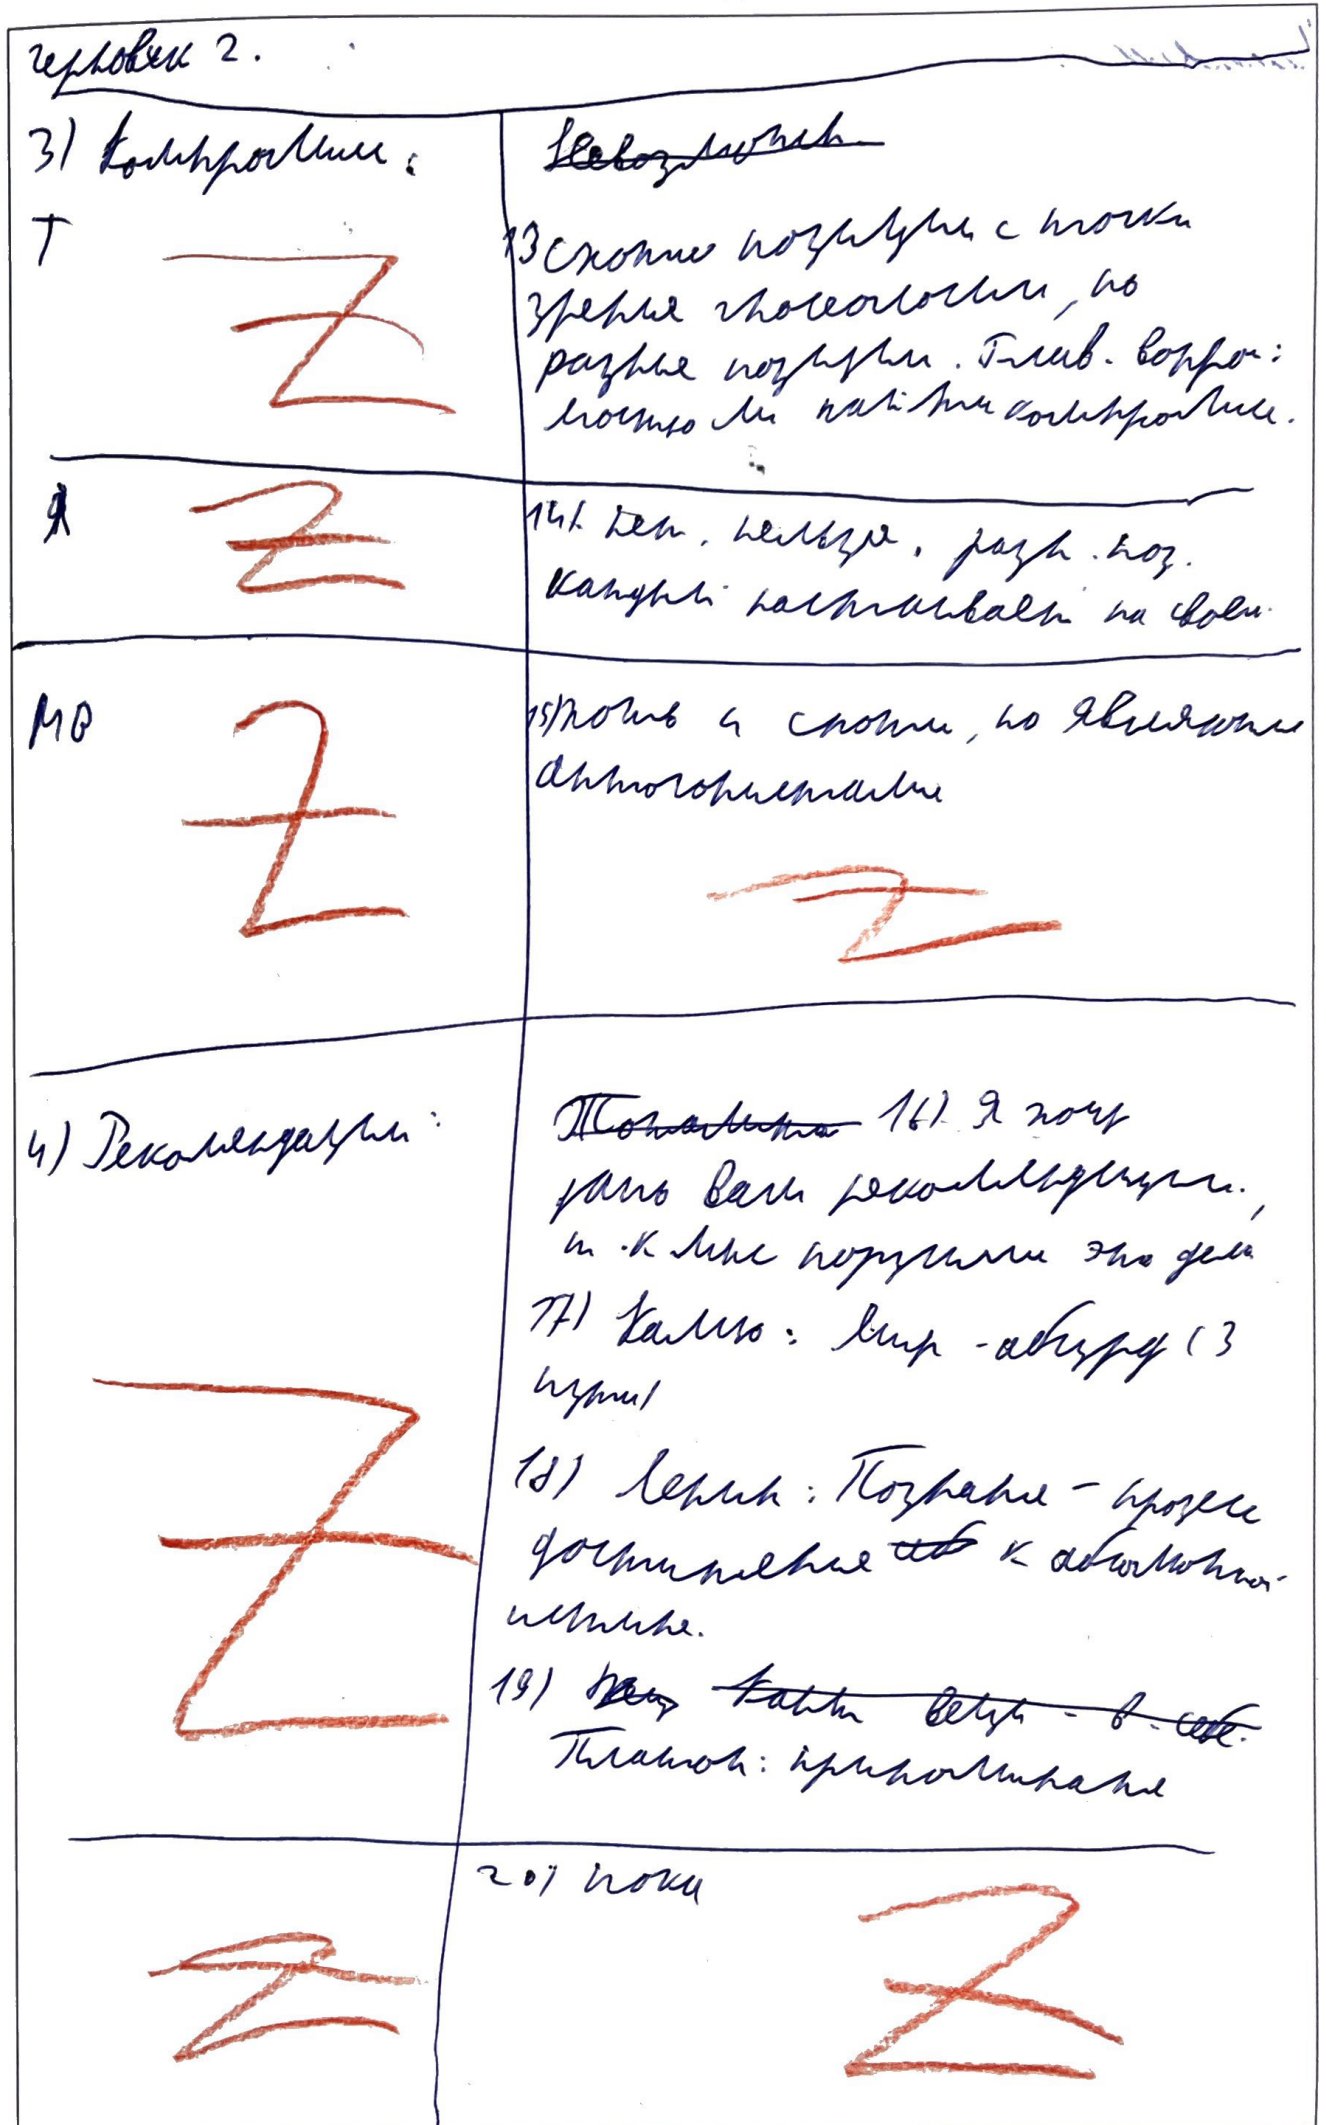 черновик 2.
3) Компромисс:
Невозможн
Т
13 схожие позиции с точки
зрения гносеологии, но
разные позиции. Глав. вопрос:
можно ли найти компромисс.
Я
14) нет, нельзя, разн. поз.
каждый настаивает на своем
МВ
15) хоть и схожи, но являются
антогонистами
4) Рекомендации:
16) Я хочу
дать Вам рекоммендации,
т.к мне поручили это дело
17) Камю: мир - абсурд (3
пути)
18) Ленин: Познание - процесс
достижения к абсолютной
истине.
19) Кант вещь - в - себе.
Платон: припоминание
20) пока
Z
Z
Z
Z
Z
Z
Z